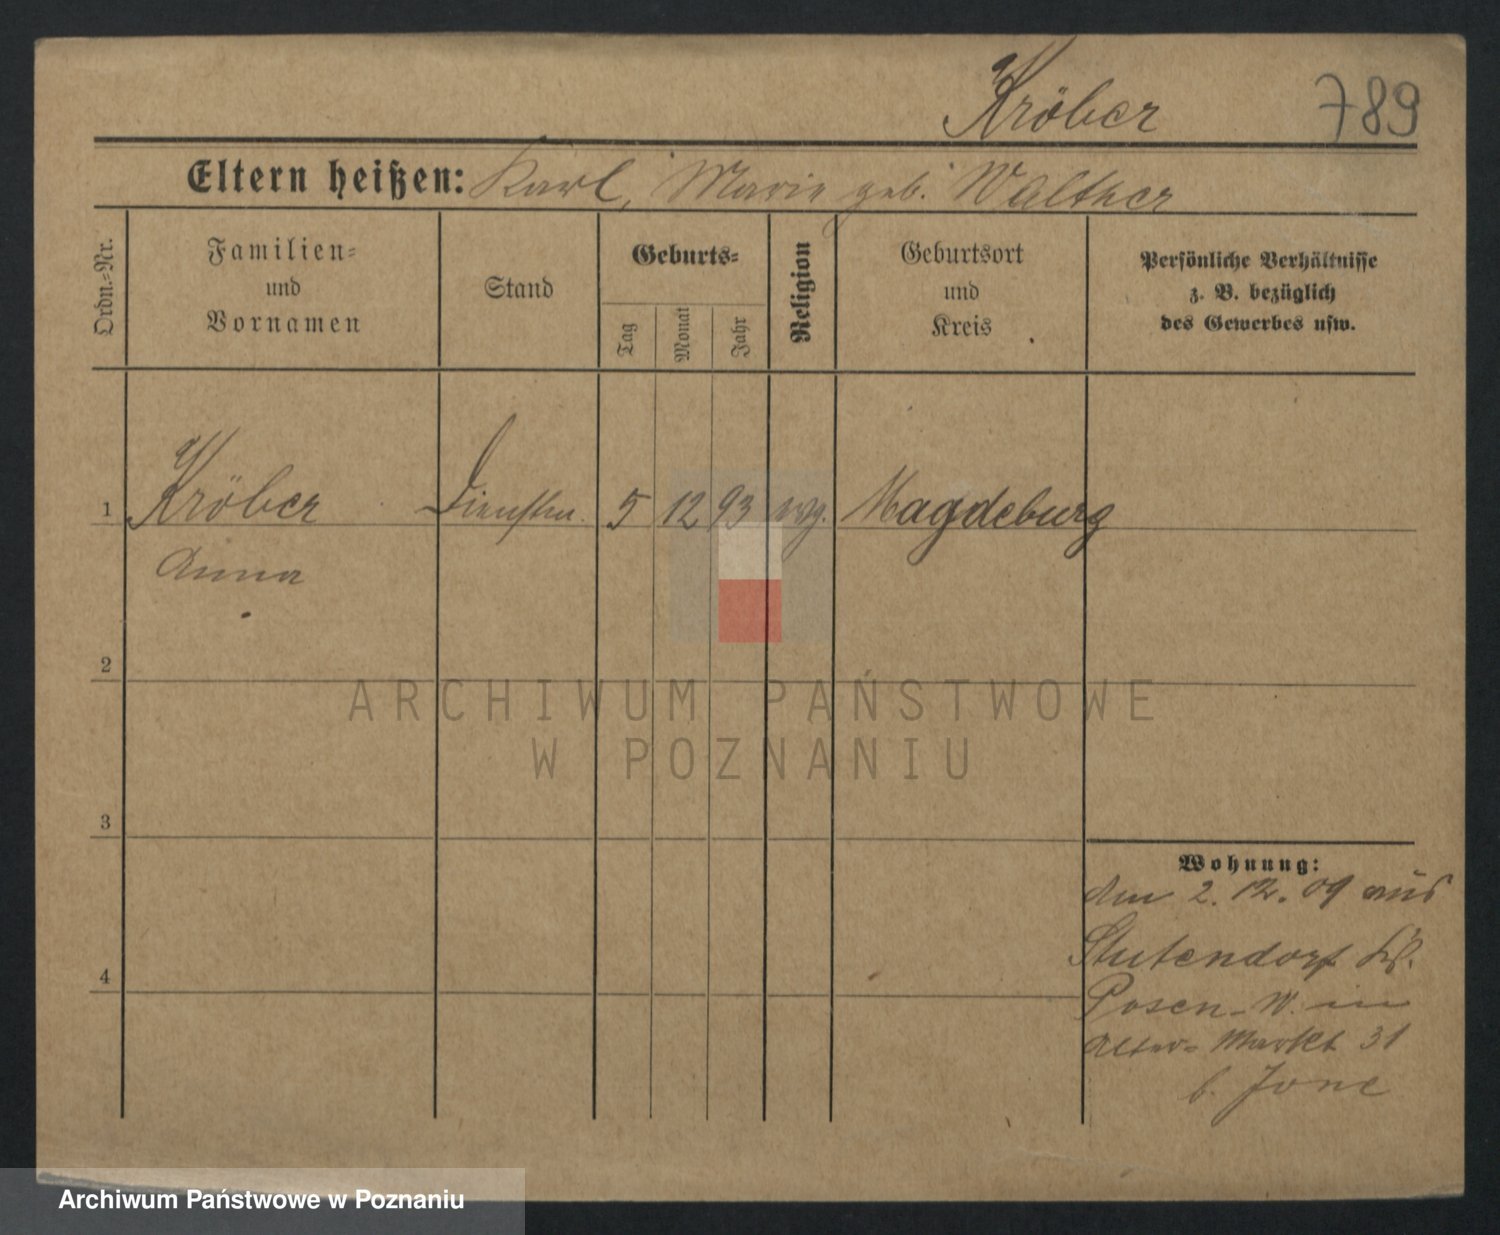 Kröber 789
Eltern heißen: Karl, Marie geb. Walther
Ordn.-Nr.
Familien-
und
Vornamen
Stand
Geburts-
Tag
Monat
Jahr
Religion
Geburtsort
und
Kreis
Persönliche Verhältnisse
z. B. bezüglich
des Gewerbes usw.
1 Kröber Dienstm. 5 12 93 evg. Magdeburg
Anna
2
ARCHIWUM PAŃSTWOWE
W POZNANIU
3
Wohnung:
den 2. 12. 09 aus
Stutendorf
4
Posen-W. in
Alter-Markt 31
b. Jone
Archiwum Państwowe w Poznaniu